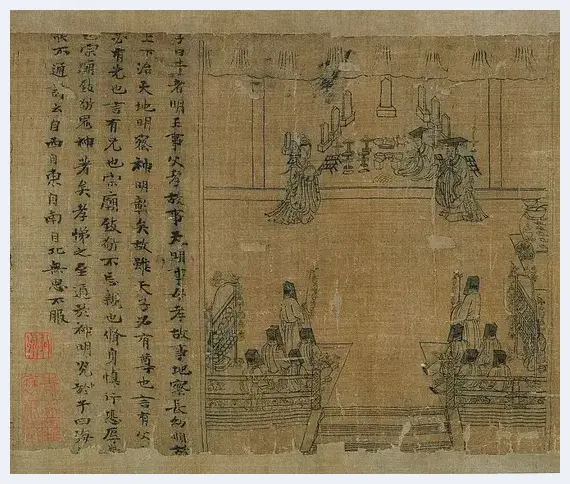 子曰昔者明王事父孝故事天明事母孝故事地察長幼順故
上下治天地明察神明彰矣故雖天子必有尊也言有父
必有先也言有兄也宗廟致敬不忘親也脩身慎行恐辱
也宗廟致敬鬼神著矣孝悌之至通於神明光於四海
所不通詩云自西自東自南自北無思不服